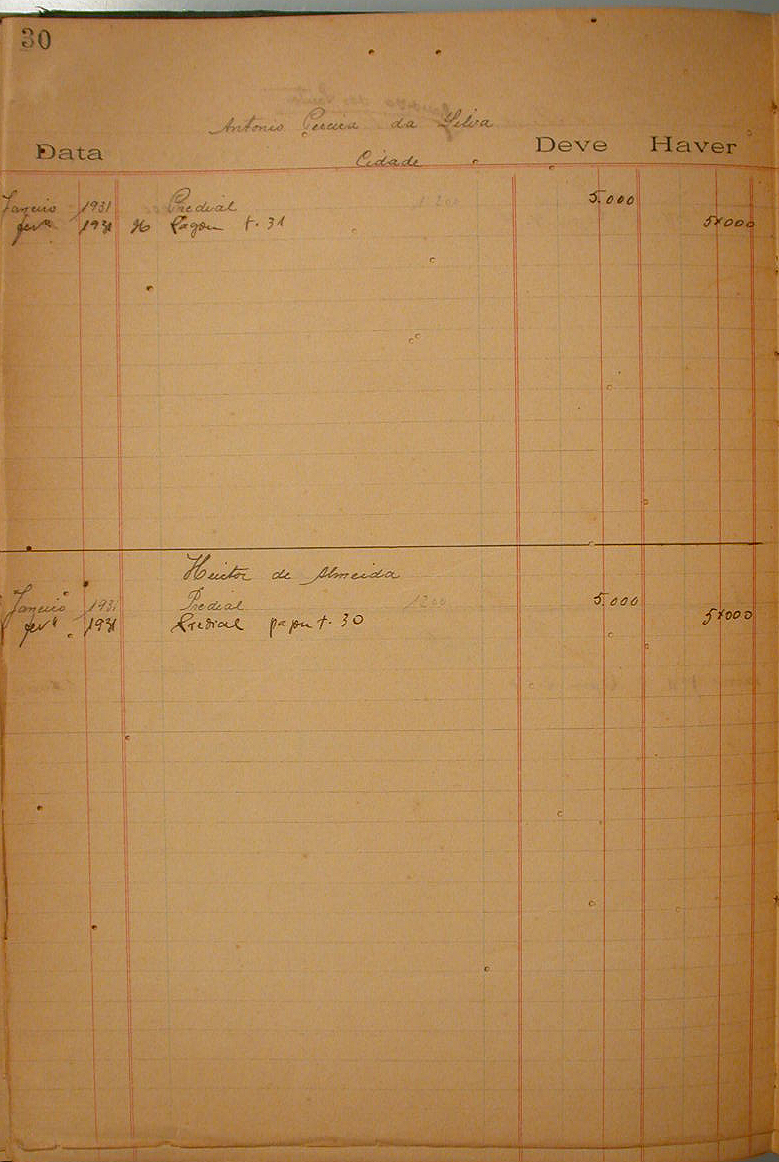 30
Antonio Pereira da Silva
Data Cidade Deve Haver
Janeiro 1931 Predial 1200 5.000
fevº 1931 Pagou t. 31 5$000
Heitor de Almeida
Janeiro 1931 Predial 1200 5.000
fevº 1931 Predial pagou t. 30 5$000